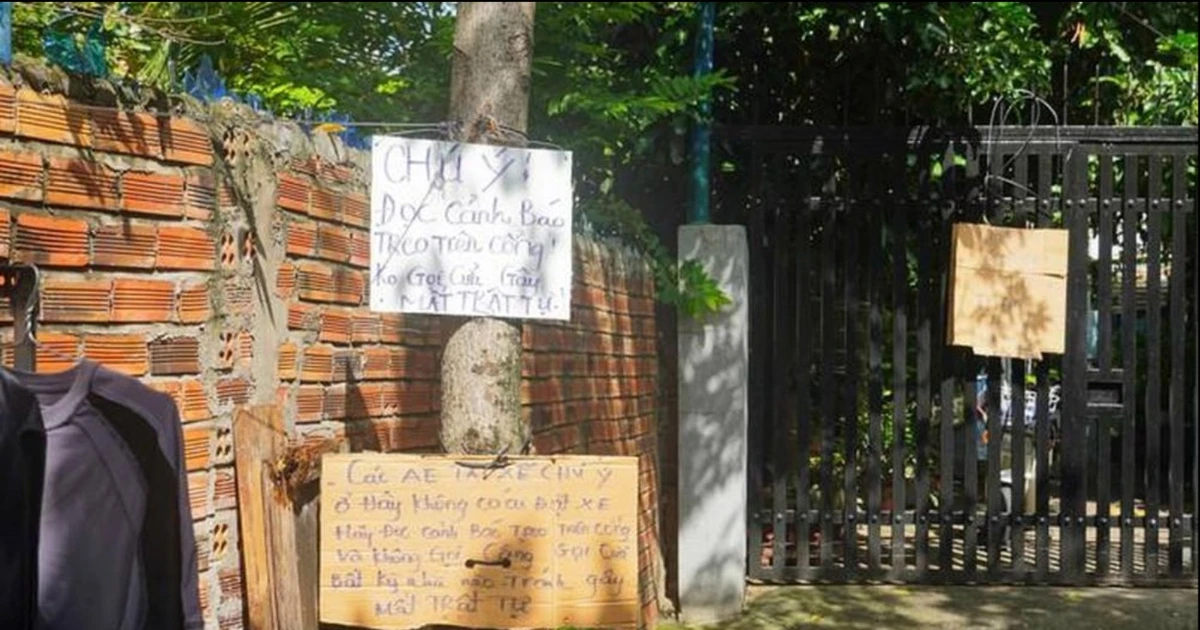 CHÚ Ý!
Đọc Cảnh Báo
Treo Trên Cổng!
Ko Gọi Cửa Gây
MẤT TRẬT TỰ!
Các AE TÀI XẾ CHÚ Ý
Ở Đây Không có ai Đặt XE
Hãy Đọc Cảnh Báo Treo Trên Cổng
Và Không Gọi Gọi Cửa
Bất Kỳ nhà nào Tránh gây
Mất TRẬT TỰ